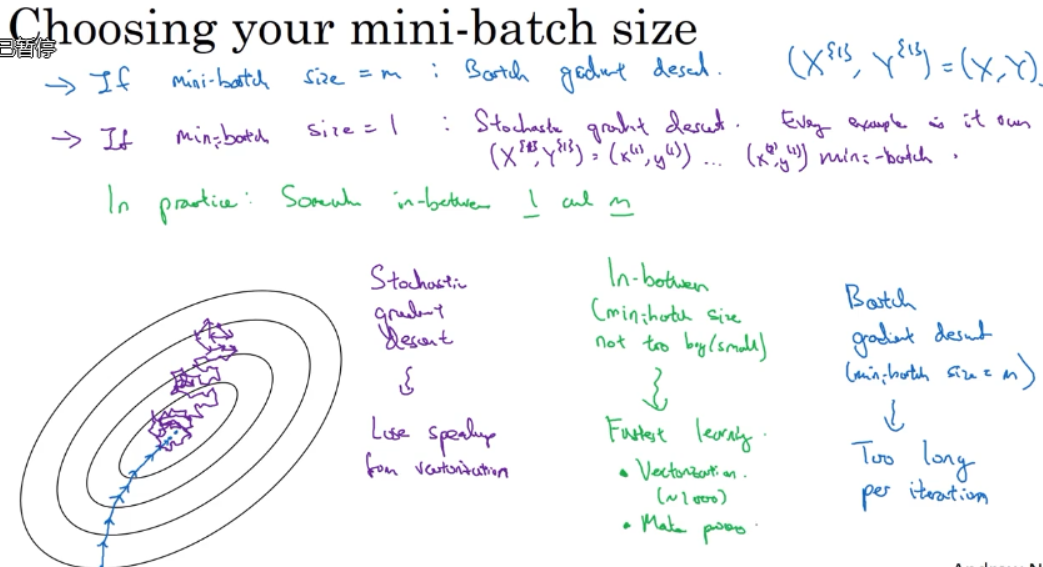 Choosing your mini-batch size
已暂停
→ If mini-batch size = m : Batch gradient descent. (X^{1}, Y^{1}) = (X, Y).
→ If mini-batch size = 1 : Stochastic gradient descent. Every example is it own
(X^{1}, Y^{1}) = (x^(1), y^(1)) ... mini-batch.
In practice: Somewhere in-between 1 and m
Stochastic
gradient
descent
Lose speedup
from vectorization
In-between
(mini-batch size
not too big/small)
Fastest learning.
• Vectorization.
(~1000)
• Make
Batch
gradient descent
(mini-batch size = m)
Too long
per iteration